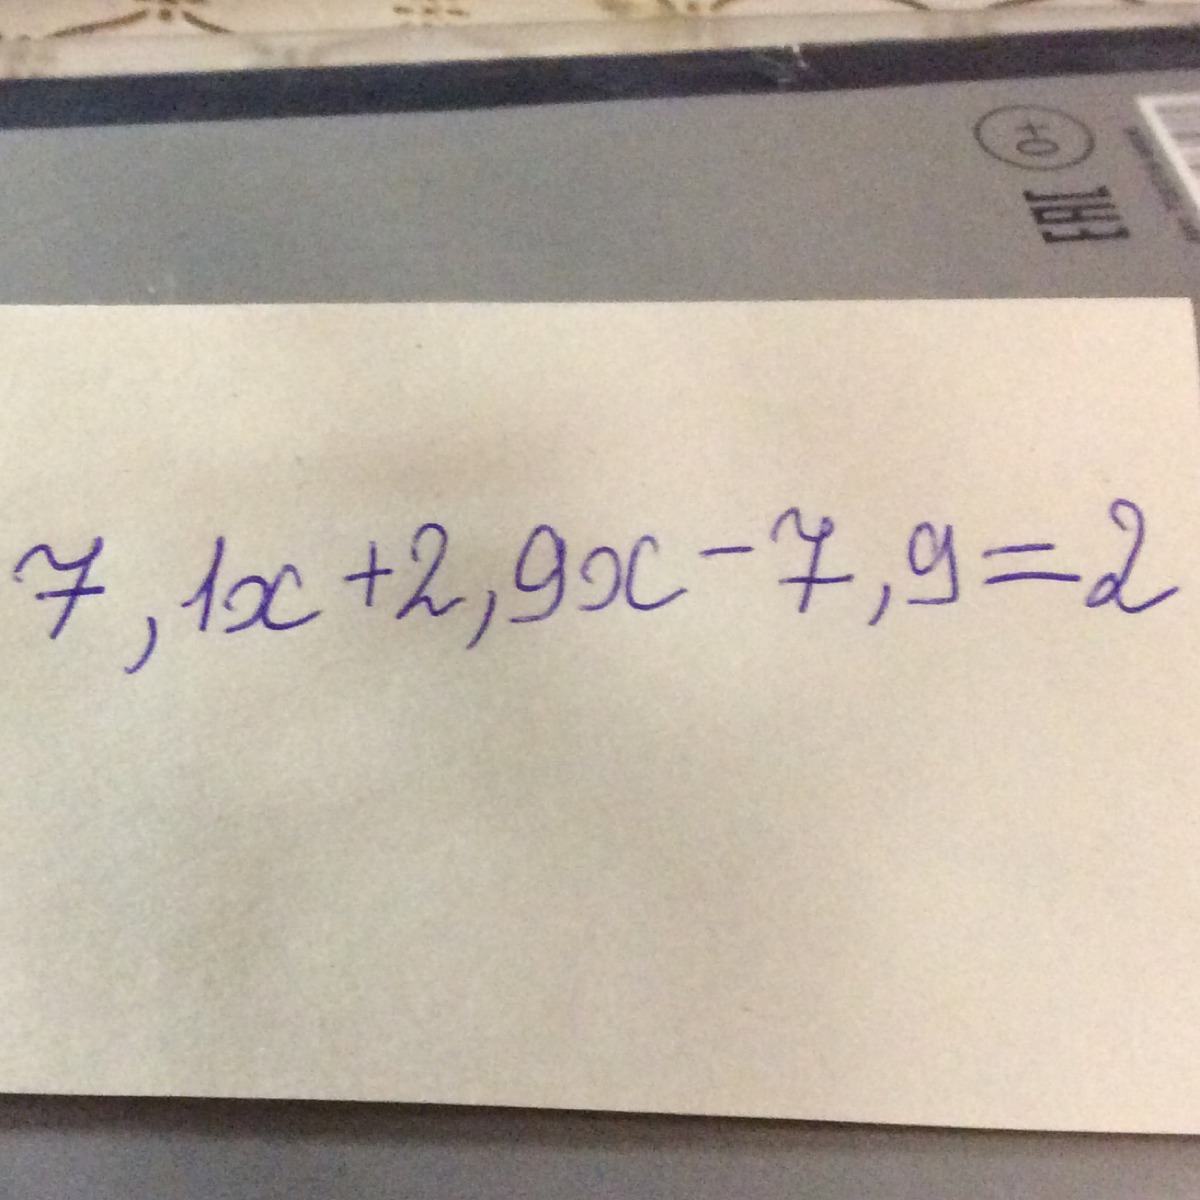 ЕАС
7,1x+2,9x-7,9=2